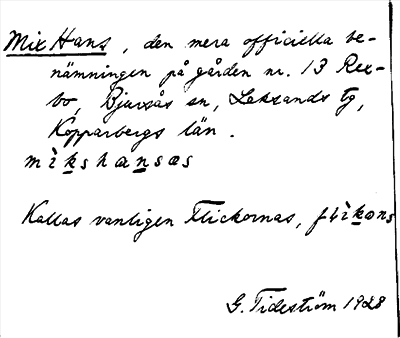 Mix Hans, den mera officiella be-
nämningen på gården nr. 13 Rex-
bo, Bjursås sn, Leksands tg,
Kopparbergs län.
mìkshansas
Kallas vanligen Flickornas, flìkons
G. Tideström 1928